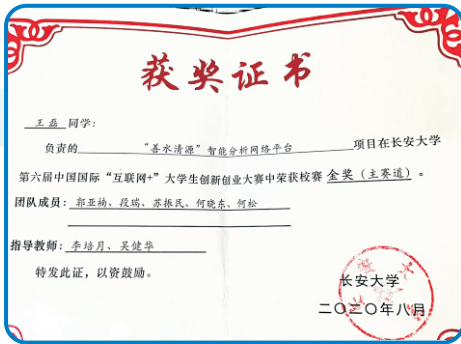 获奖证书
王磊 同学:
负责的 “善水清源”智能分析网络平台 项目在长安大学
第六届中国国际“互联网+”大学生创新创业大赛中荣获校赛 金奖(主赛道)。
团队成员: 郭亚楠、段瑞、苏振民、何晓东、何松
指导教师: 李培月、吴健华
特发此证,以资鼓励。
长安大学
二〇二〇年八月